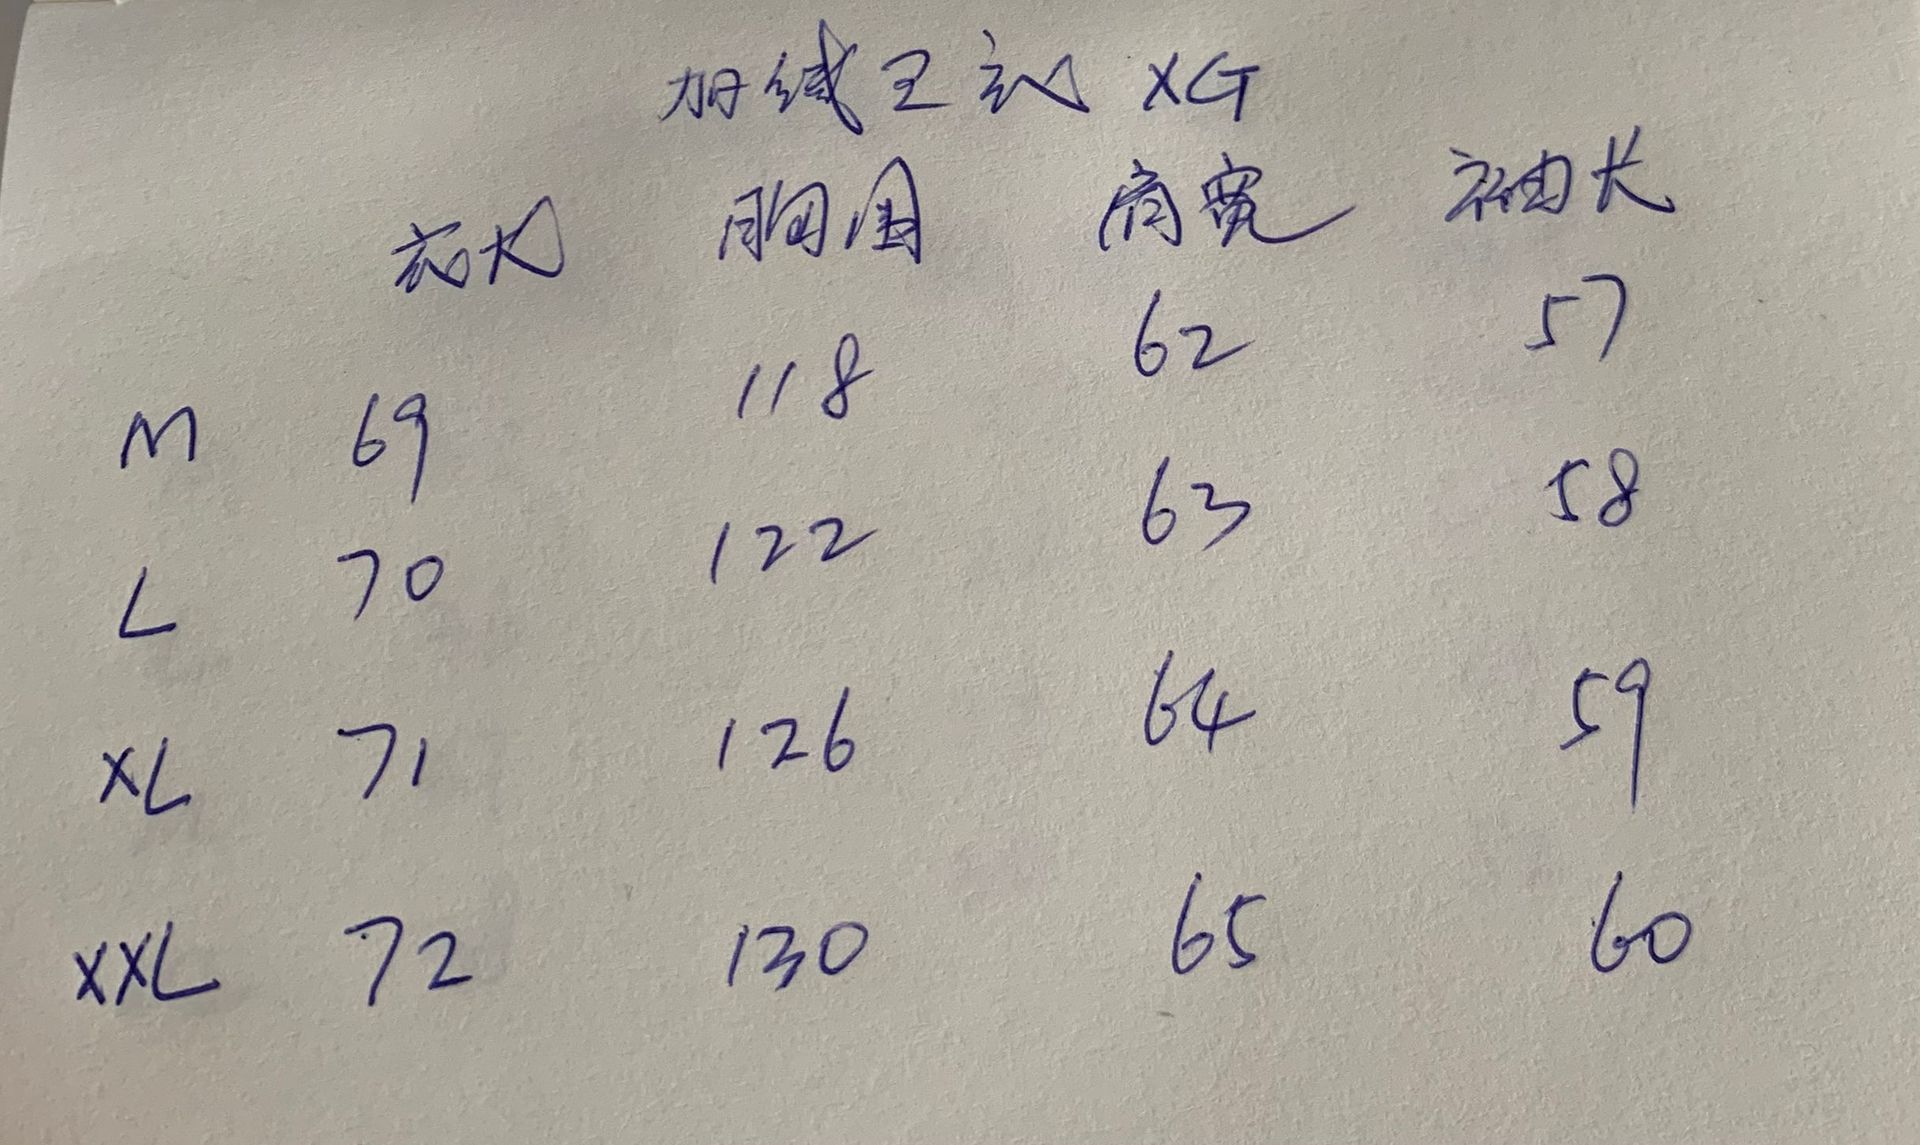 加绒卫衣 XG
衣长 胸围 肩宽 袖长
M 69 118 62 57
L 70 122 63 58
XL 71 126 64 59
XXL 72 130 65 60